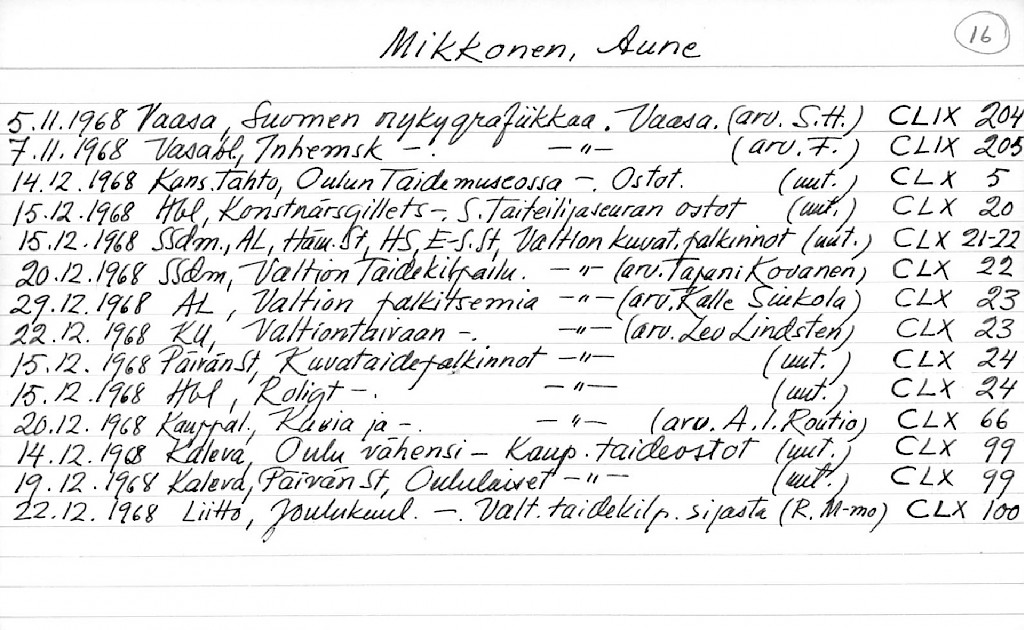 Mikkonen, Aune
16
5.11.1968 Vaasa, Suomen nykygrafiikkaa. Vaasa. (arv. S.H.) CLIX 204
7.11.1968 Vasabl, Inhemsk -. -"- (arv. F.) CLIX 205
14.12.1968 Kans.Tahto, Oulun Taidemuseossa -. Ostot. (uut.) CLX 5
15.12.1968 Hbl, Konstnärsgillets -. S.Taiteilijaseuran ostot (uut.) CLX 20
15.12.1968 SSdm., AL, Häm.St, HS, E-S.St, Valtion kuvat.palkinnot (uut.) CLX 21-22
20.12.1968 SSdm, Valtion Taidekilpailu. -"- (arv. Tapani Kovanen) CLX 22
29.12.1968 AL, Valtion palkitsemia -"- (arv. Kalle Siukola) CLX 23
22.12.1968 KU, Valtiontaivaan -. -"- (arv. Lev Lindsten) CLX 23
15.12.1968 PäivänSt, Kuvataidepalkinnot -"- (uut.) CLX 24
15.12.1968 Hbl, Roligt -. -"- (uut.) CLX 24
20.12.1968 Kauppal., Kuvia ja -. -"- (arv. A.I.Routio) CLX 66
14.12.1968 Kaleva, Oulu vähensi - Kaup. taideostot (uut.) CLX 99
19.12.1968 Kaleva, PäivänSt, Oululaiset -"- (uut.) CLX 99
22.12.1968 Liitto, Joulukuul. -. Valt. taidekilp. sijasta (R. M-mo) CLX 100